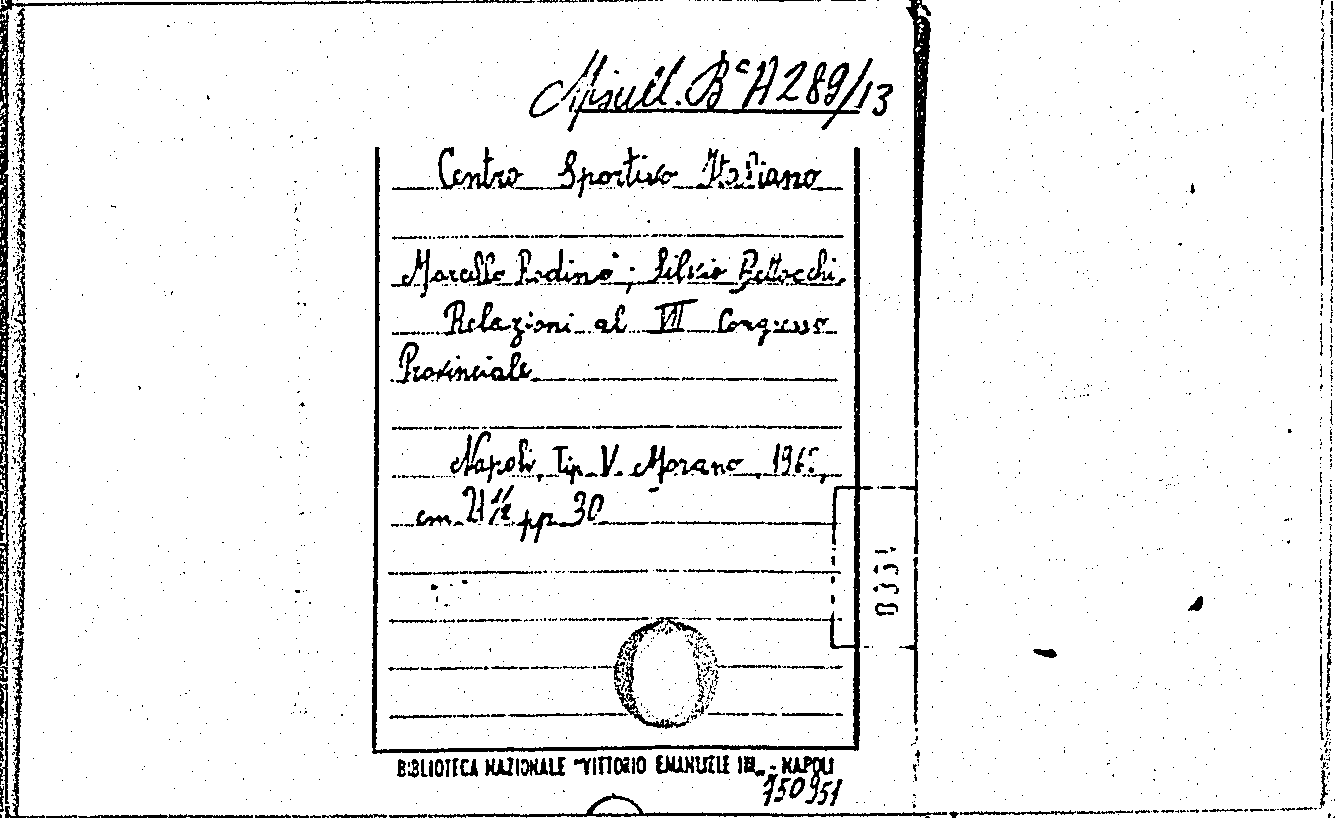 Miscell. Bª A 289/13
Centro Sportivo Italiano
Marcello Rodinò; Silvio Bettocchi.
Relazioni al VII Congresso
Provinciale
Napoli, Tip. V. Morano,
cm. 21½ pp. 30
BIBLIOTECA NAZIONALE "VITTORIO EMANUELE III" - NAPOLI
750951